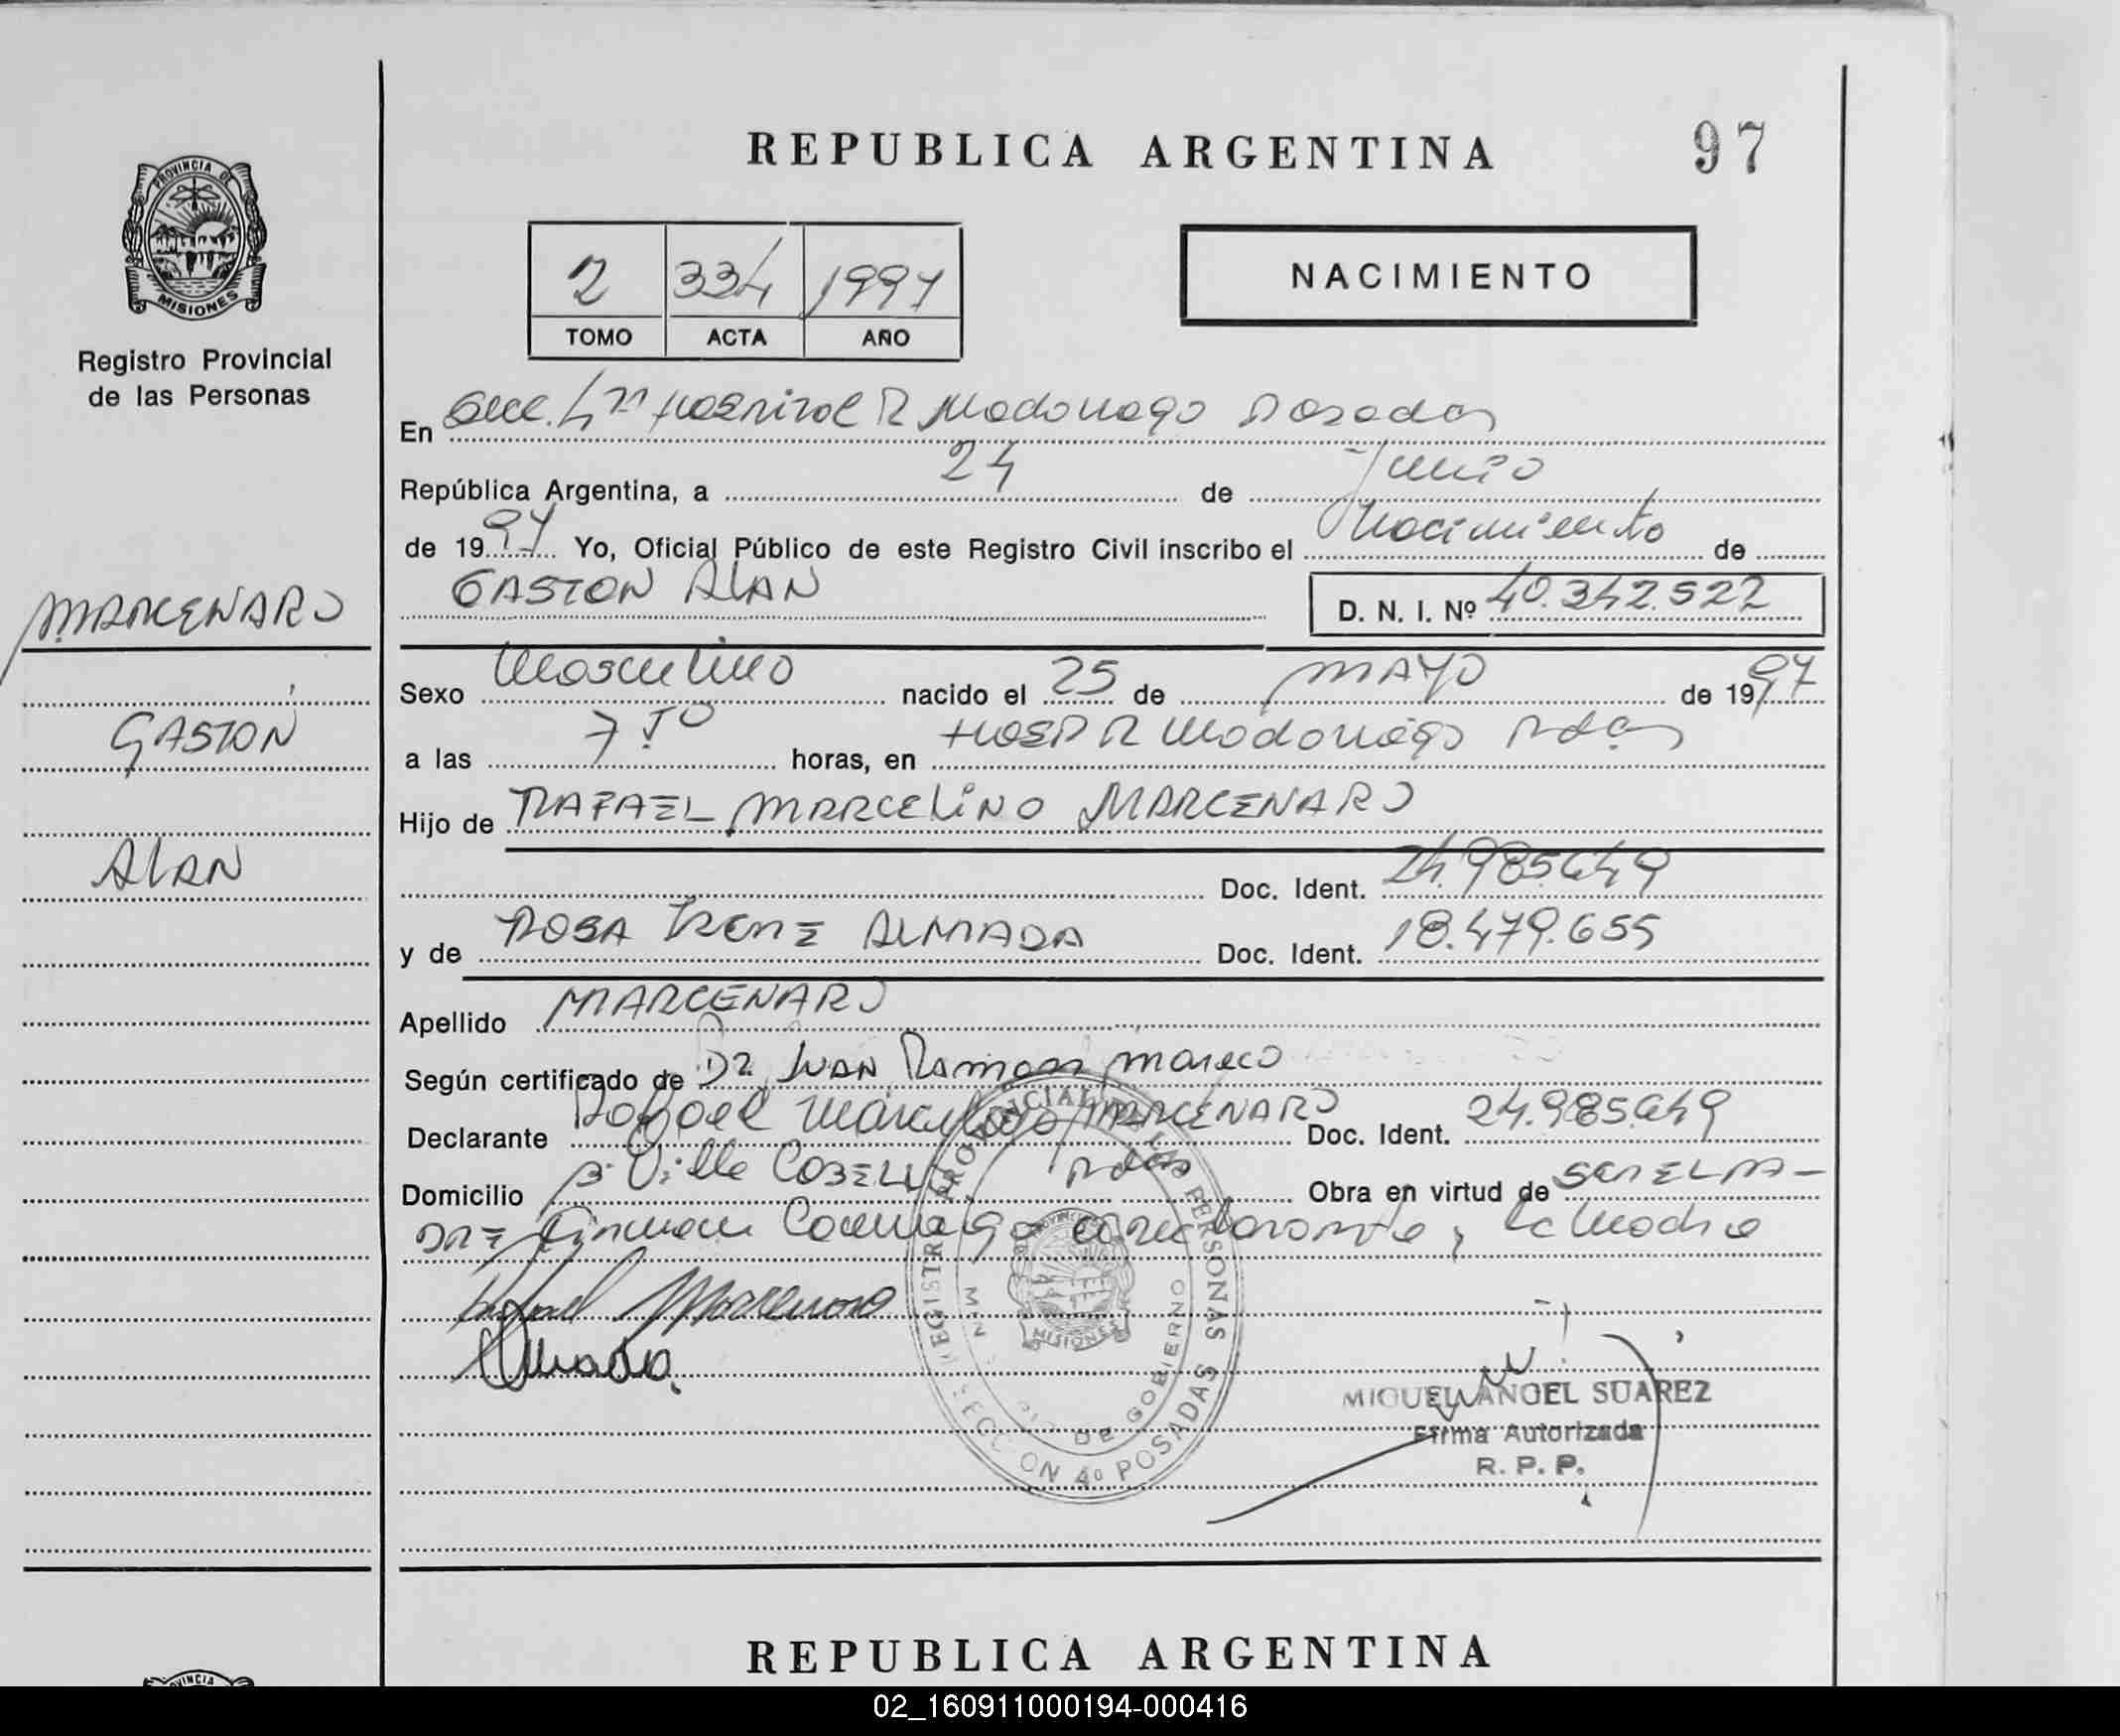 REPUBLICA ARGENTINA
97
PROVINCIA DE
MISIONES
Registro Provincial
de las Personas
2 334 1997
TOMO ACTA AÑO
NACIMIENTO
En Secc. 4ta Hospital R Madariaga Posadas
República Argentina, a 24 de Junio
de 1997 Yo, Oficial Público de este Registro Civil inscribo el Nacimiento de
GASTON ALAN
D. N. I. Nº 40.342.522
MARCENARO
GASTON
ALAN
Sexo Masculino nacido el 25 de MAYO de 1997
a las horas, en HOSP R Madariaga Pdas
Hijo de RAFAEL MARCELINO MARCENARO
Doc. Ident. 24.985.649
y de ROSA IRENE ALMADA Doc. Ident. 18.479.655
Apellido MARCENARO
Según certificado de Dr. JUAN Ramon Mareco
Declarante Rafael Marcelino MARCENARO Doc. Ident. 24.985.649
Domicilio Bº Villa Pdas Obra en virtud de SER EL PA-
DRE Firman Conmigo el declarante y la Madre
Almada
REGISTRO PROVINCIAL DE LAS PERSONAS
MINISTERIO DE GOBIERNO
PROVINCIA
MISIONES
SECCION 4º POSADAS
MIGUEL ANGEL SUAREZ
Firma Autorizada
R. P. P.
REPUBLICA ARGENTINA
02_160911000194-000416